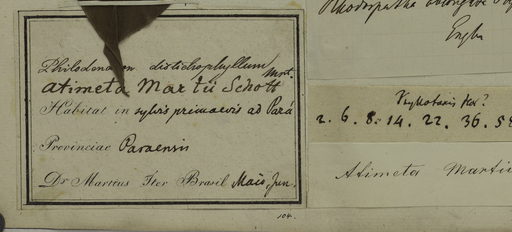 Philodendron distichophyllum Mrt.
Atimeta Martii Schott
Habitat in sylvis primaevis ad Pará
Provinciae Paraensis
Dr Martius Iter Brasil Maio, Jun.
104.
Engler
2. 6. 8. 14. 22. 36.
Atimeta Martii